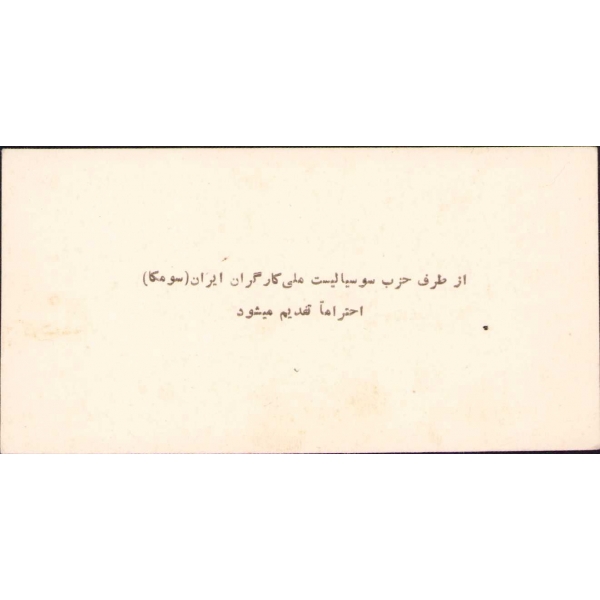 از طرف حزب سوسیالیست ملی کارگران ایران (سومکا)
احتراماً تقدیم میشود